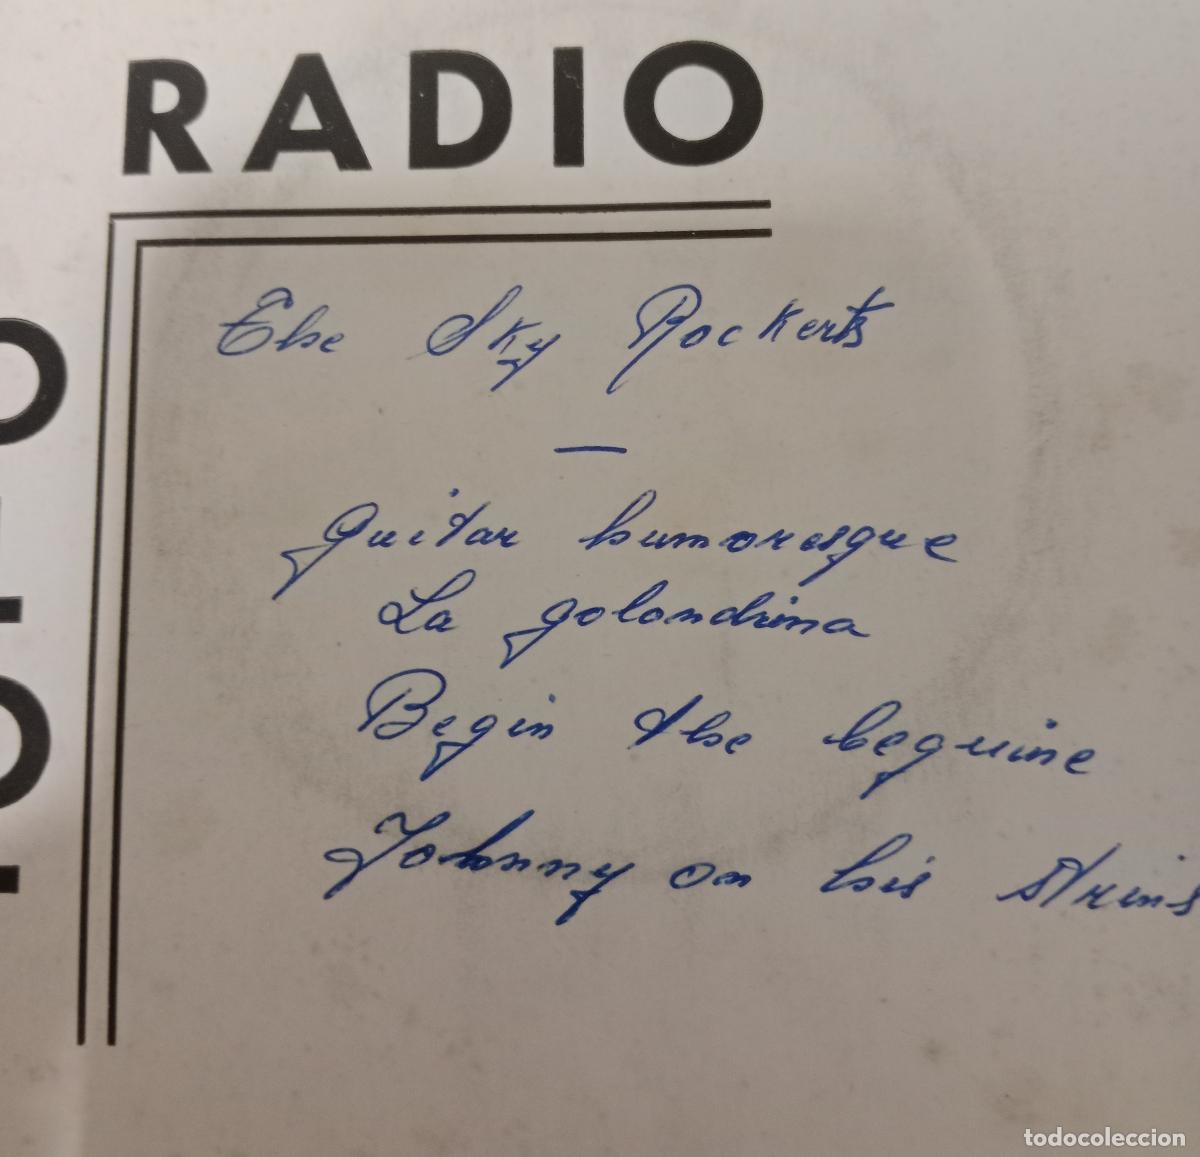 RADIO
The Sky Rockerts
—
Guitar humoresque
La golondrina
Begin the beguine
Johnny on his strins
todocoleccion